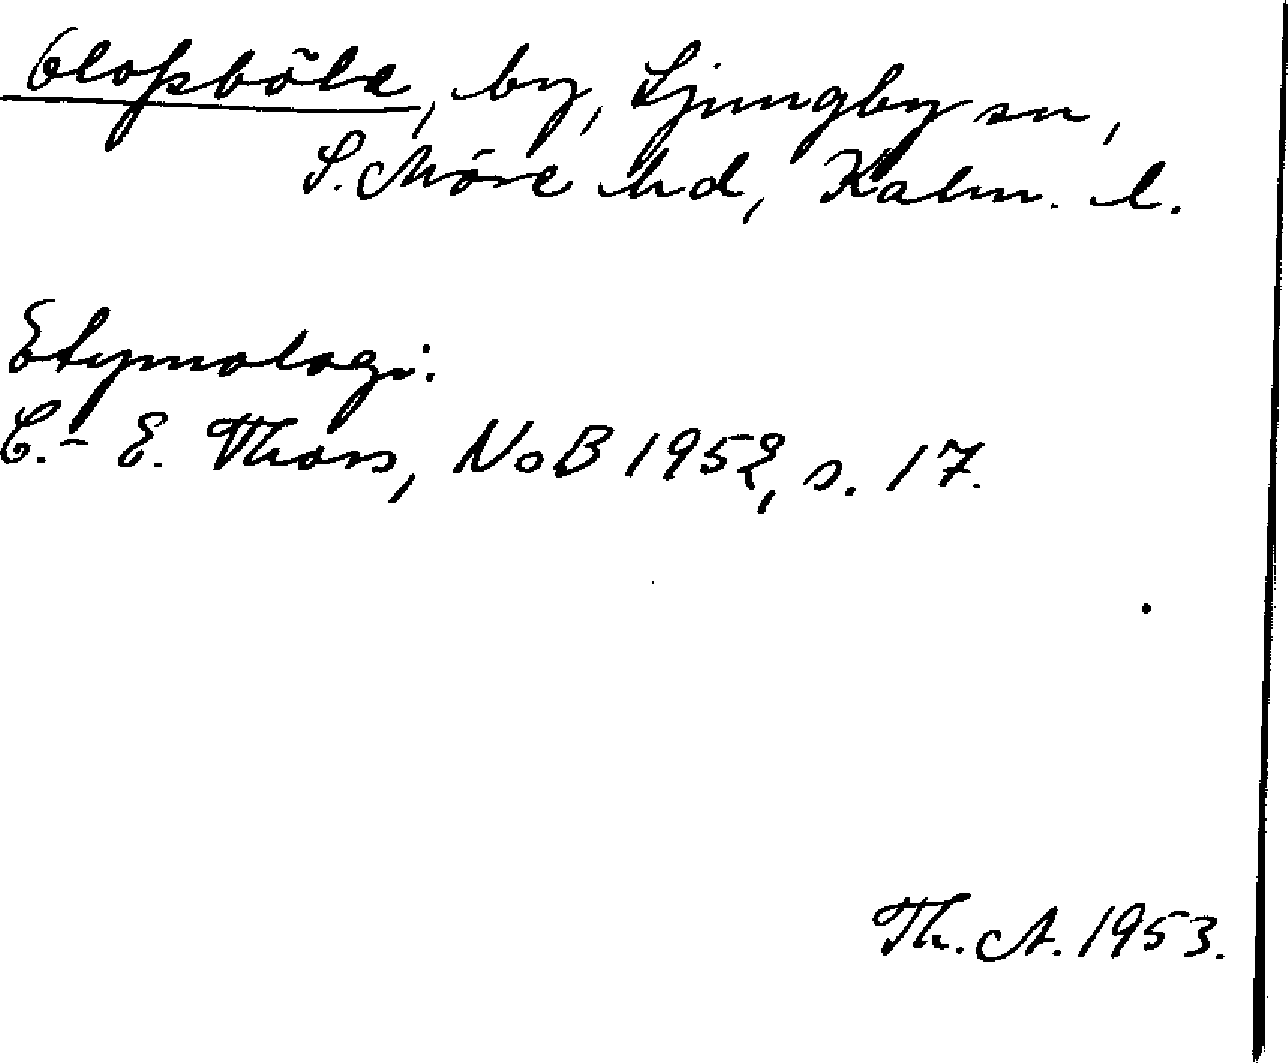 Olofsböle, by, Ljungby sn,
S. Möre hd, Kalm. l.
Etymologi:
C.-E. Thors, NoB 1952, s. 17.
Th. A. 1953.